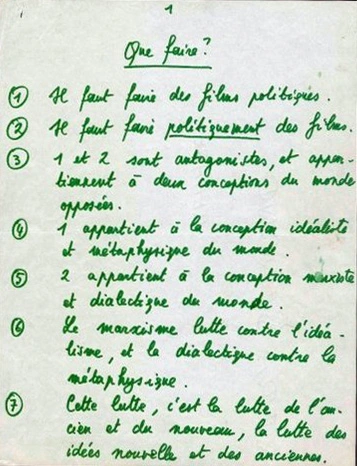 1
Que faire?
① Il faut faire des films politiques.
② Il faut faire politiquement des films.
③ 1 et 2 sont antagonistes, et appar-
tiennent à deux conceptions du monde
opposées.
④ 1 appartient à la conception idéaliste
et métaphysique du monde.
⑤ 2 appartient à la conception marxiste
et dialectique du monde.
⑥ Le marxisme lutte contre l'idéa-
lisme, et la dialectique contre la
métaphysique.
⑦ Cette lutte, c'est la lutte de l'an-
cien et du nouveau, la lutte des
idées nouvelles et des anciennes.